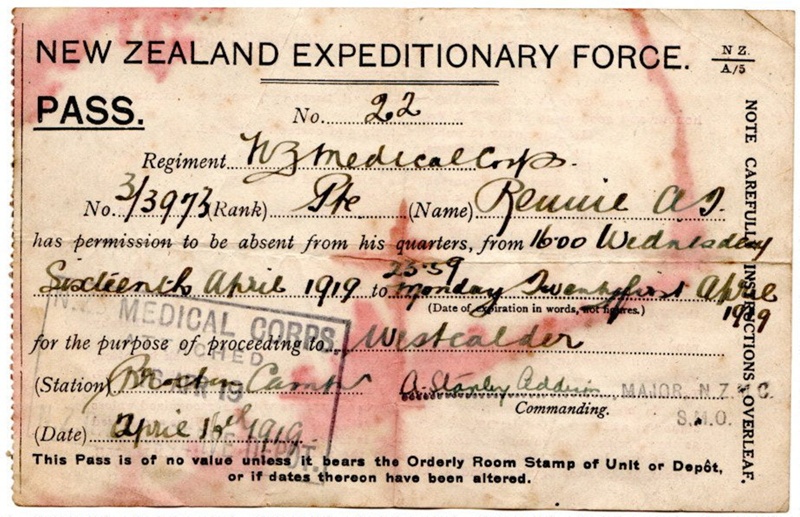 NEW ZEALAND EXPEDITIONARY FORCE.
N Z.
A/5
PASS.
No. 22
Regiment N Z Medical Corps.
No. 3/3973 (Rank) Pte (Name) Rennie A J.
has permission to be absent from his quarters, from 16·00 Wednesday
Sixteenth April 1919 to 23·59 Monday Twenty first April 1919
(Date of expiration in words, not figures.)
for the purpose of proceeding to Westcalder
(Station) Camp A. Stanley Addison MAJOR N.Z. C.
Commanding. S.M.O.
(Date) April 1919
MEDICAL CORPS.
APR 19
This Pass is of no value unless it bears the Orderly Room Stamp of Unit or Depôt,
or if dates thereon have been altered.
NOTE CAREFULLY INSTRUCTIONS OVERLEAF.